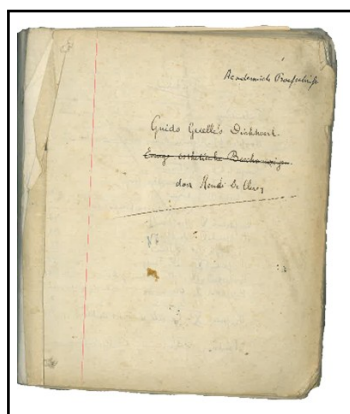 Academisch Proefschrift
Guido Gezelle's Dichtwerk.
Eenige esthetische Beschouwingen
door